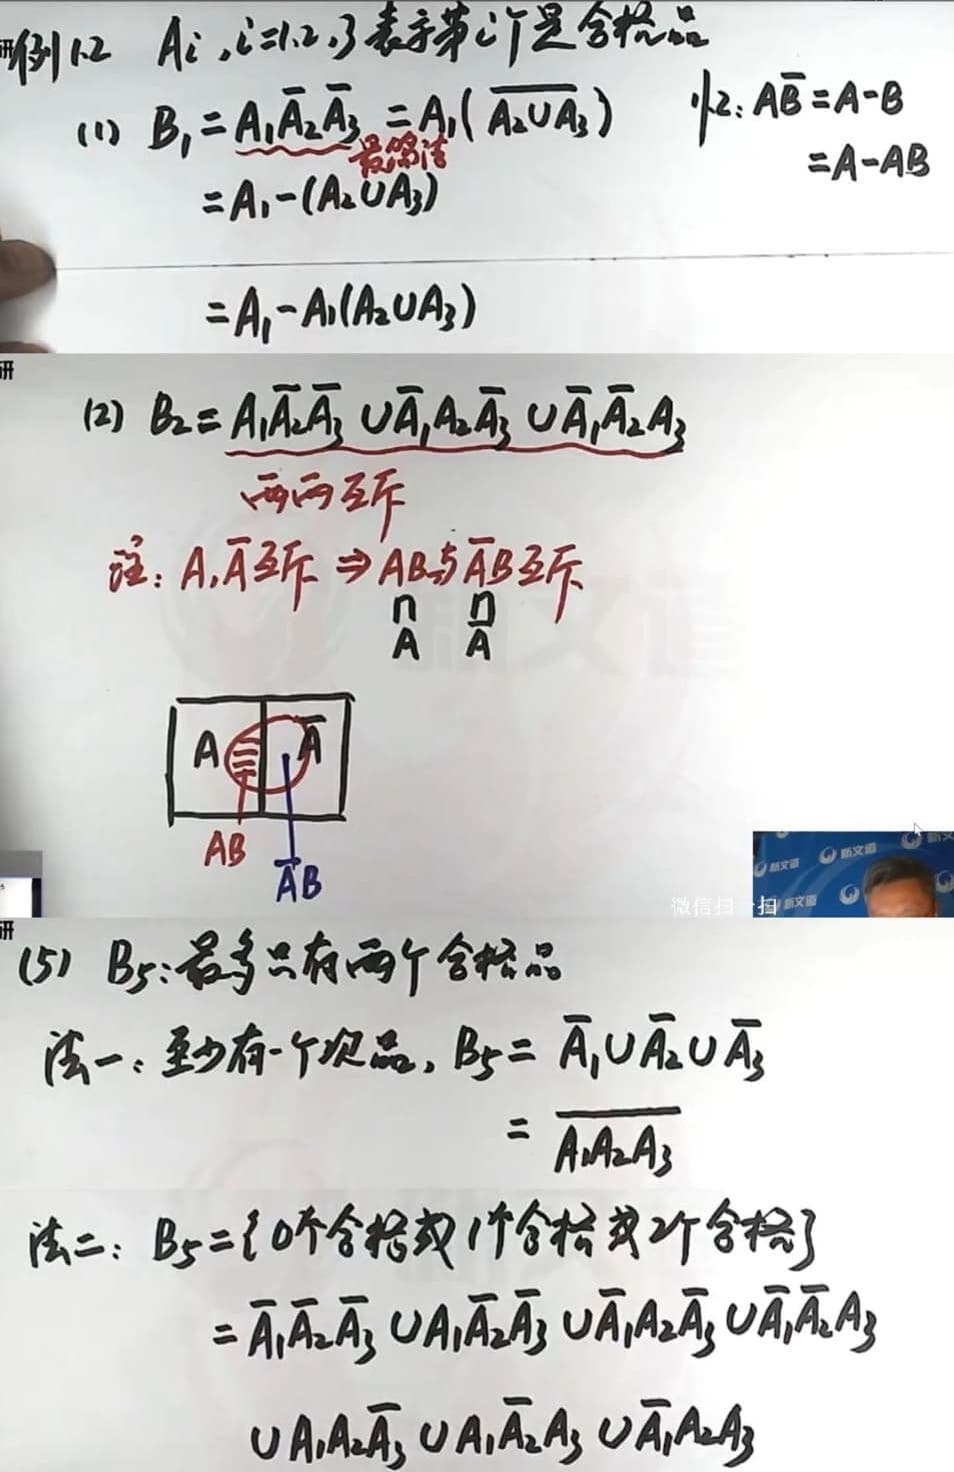 研
例1.2 Ai,i=1.2.3表示第i个是合格品
(1) B₁=A₁A̅₂A̅₃=A₁(\overline{A₂∪A₃})
最常法
记: AB̅=A-B
=A-AB
=A₁-(A₂∪A₃)
=A₁-A₁(A₂∪A₃)
研
(2) B₂=A₁A̅₂A̅₃∪A̅₁A₂A̅₃∪A̅₁A̅₂A₃
两两互斥
注: A,A̅互斥⇒AB与A̅B互斥
∩ ∩
A A̅
A A̅
AB
A̅B
新文道
新文道
新文道
新文道
微信扫一扫
研
(5) B₅:最多只有两个合格品
法一:至少有一个次品,B₅=A̅₁∪A̅₂∪A̅₃
=\overline{A₁A₂A₃}
法二: B₅={0个合格或1个合格或2个合格}
=A̅₁A̅₂A̅₃∪A₁A̅₂A̅₃∪A̅₁A₂A̅₃∪A̅₁A̅₂A₃
∪A₁A₂A̅₃∪A₁A̅₂A₃∪A̅₁A₂A₃